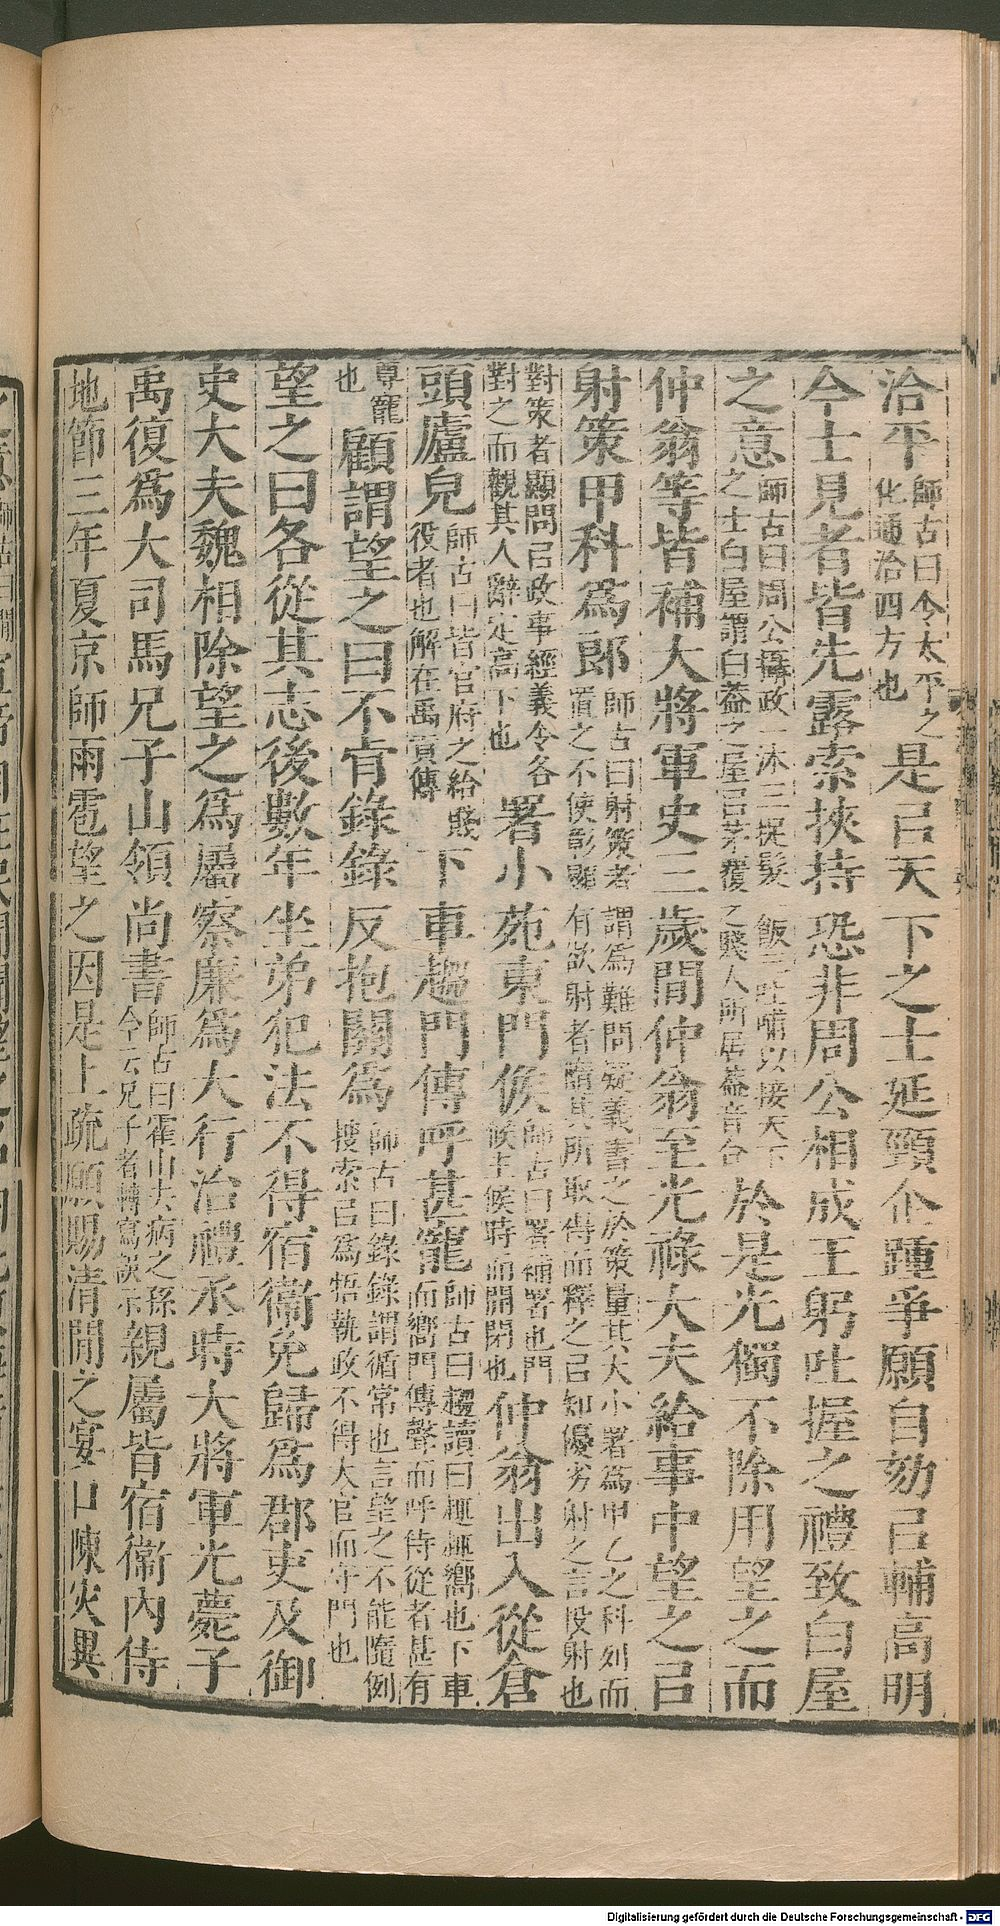 洽平師古曰令太平之化通洽四方也是㠯天下之士延頸企踵爭願自効㠯輔高明
今士見者皆先露索挾持恐非周公相成王躬吐握之禮致白屋
之意師古曰周公攝政一沐三捉髮一飯三吐哺以接天下之士白屋謂白蓋之屋㠯茅覆之賤人所居蓋音合於是光獨不除用望之而
仲翁等皆補大將軍史三歲間仲翁至光祿大夫給事中望之㠯
射策甲科爲郎師古曰射策者謂爲難問疑義書之於策量其大小署爲甲乙之科列而置之不使彰顯有欲射者隨其所取得而釋之㠯知優劣射之言投射也
對策者顯問㠯政事經義令各對之而觀其人辭定高下也署小苑東門候師古曰署補署也門候主候時而開閉也仲翁出入從倉
頭廬兒師古曰皆官府之給賤役者也解在禹貢傳下車趨門傳呼甚寵師古曰趨讀曰趣趣嚮也下車而嚮門傳聲而呼侍從者甚有
尊寵也顧謂望之曰不肯錄錄反抱關爲師古曰錄錄謂循常也言望之不能隨例搜索㠯爲牾執政不得大官而守門也
望之曰各從其志後數年坐弟犯法不得宿衞免歸爲郡吏及御
史大夫魏相除望之爲屬察廉爲大行治禮丞時大將軍光薨子
禹復爲大司馬兄子山領尚書師古曰霍山去病之孫今云兄子者轉寫誤尒親屬皆宿衞內侍
地節三年夏京師雨雹望之因是上疏願賜清閒之宴口陳灾異
Digitalisierung gefördert durch die Deutsche Forschungsgemeinschaft - DFG